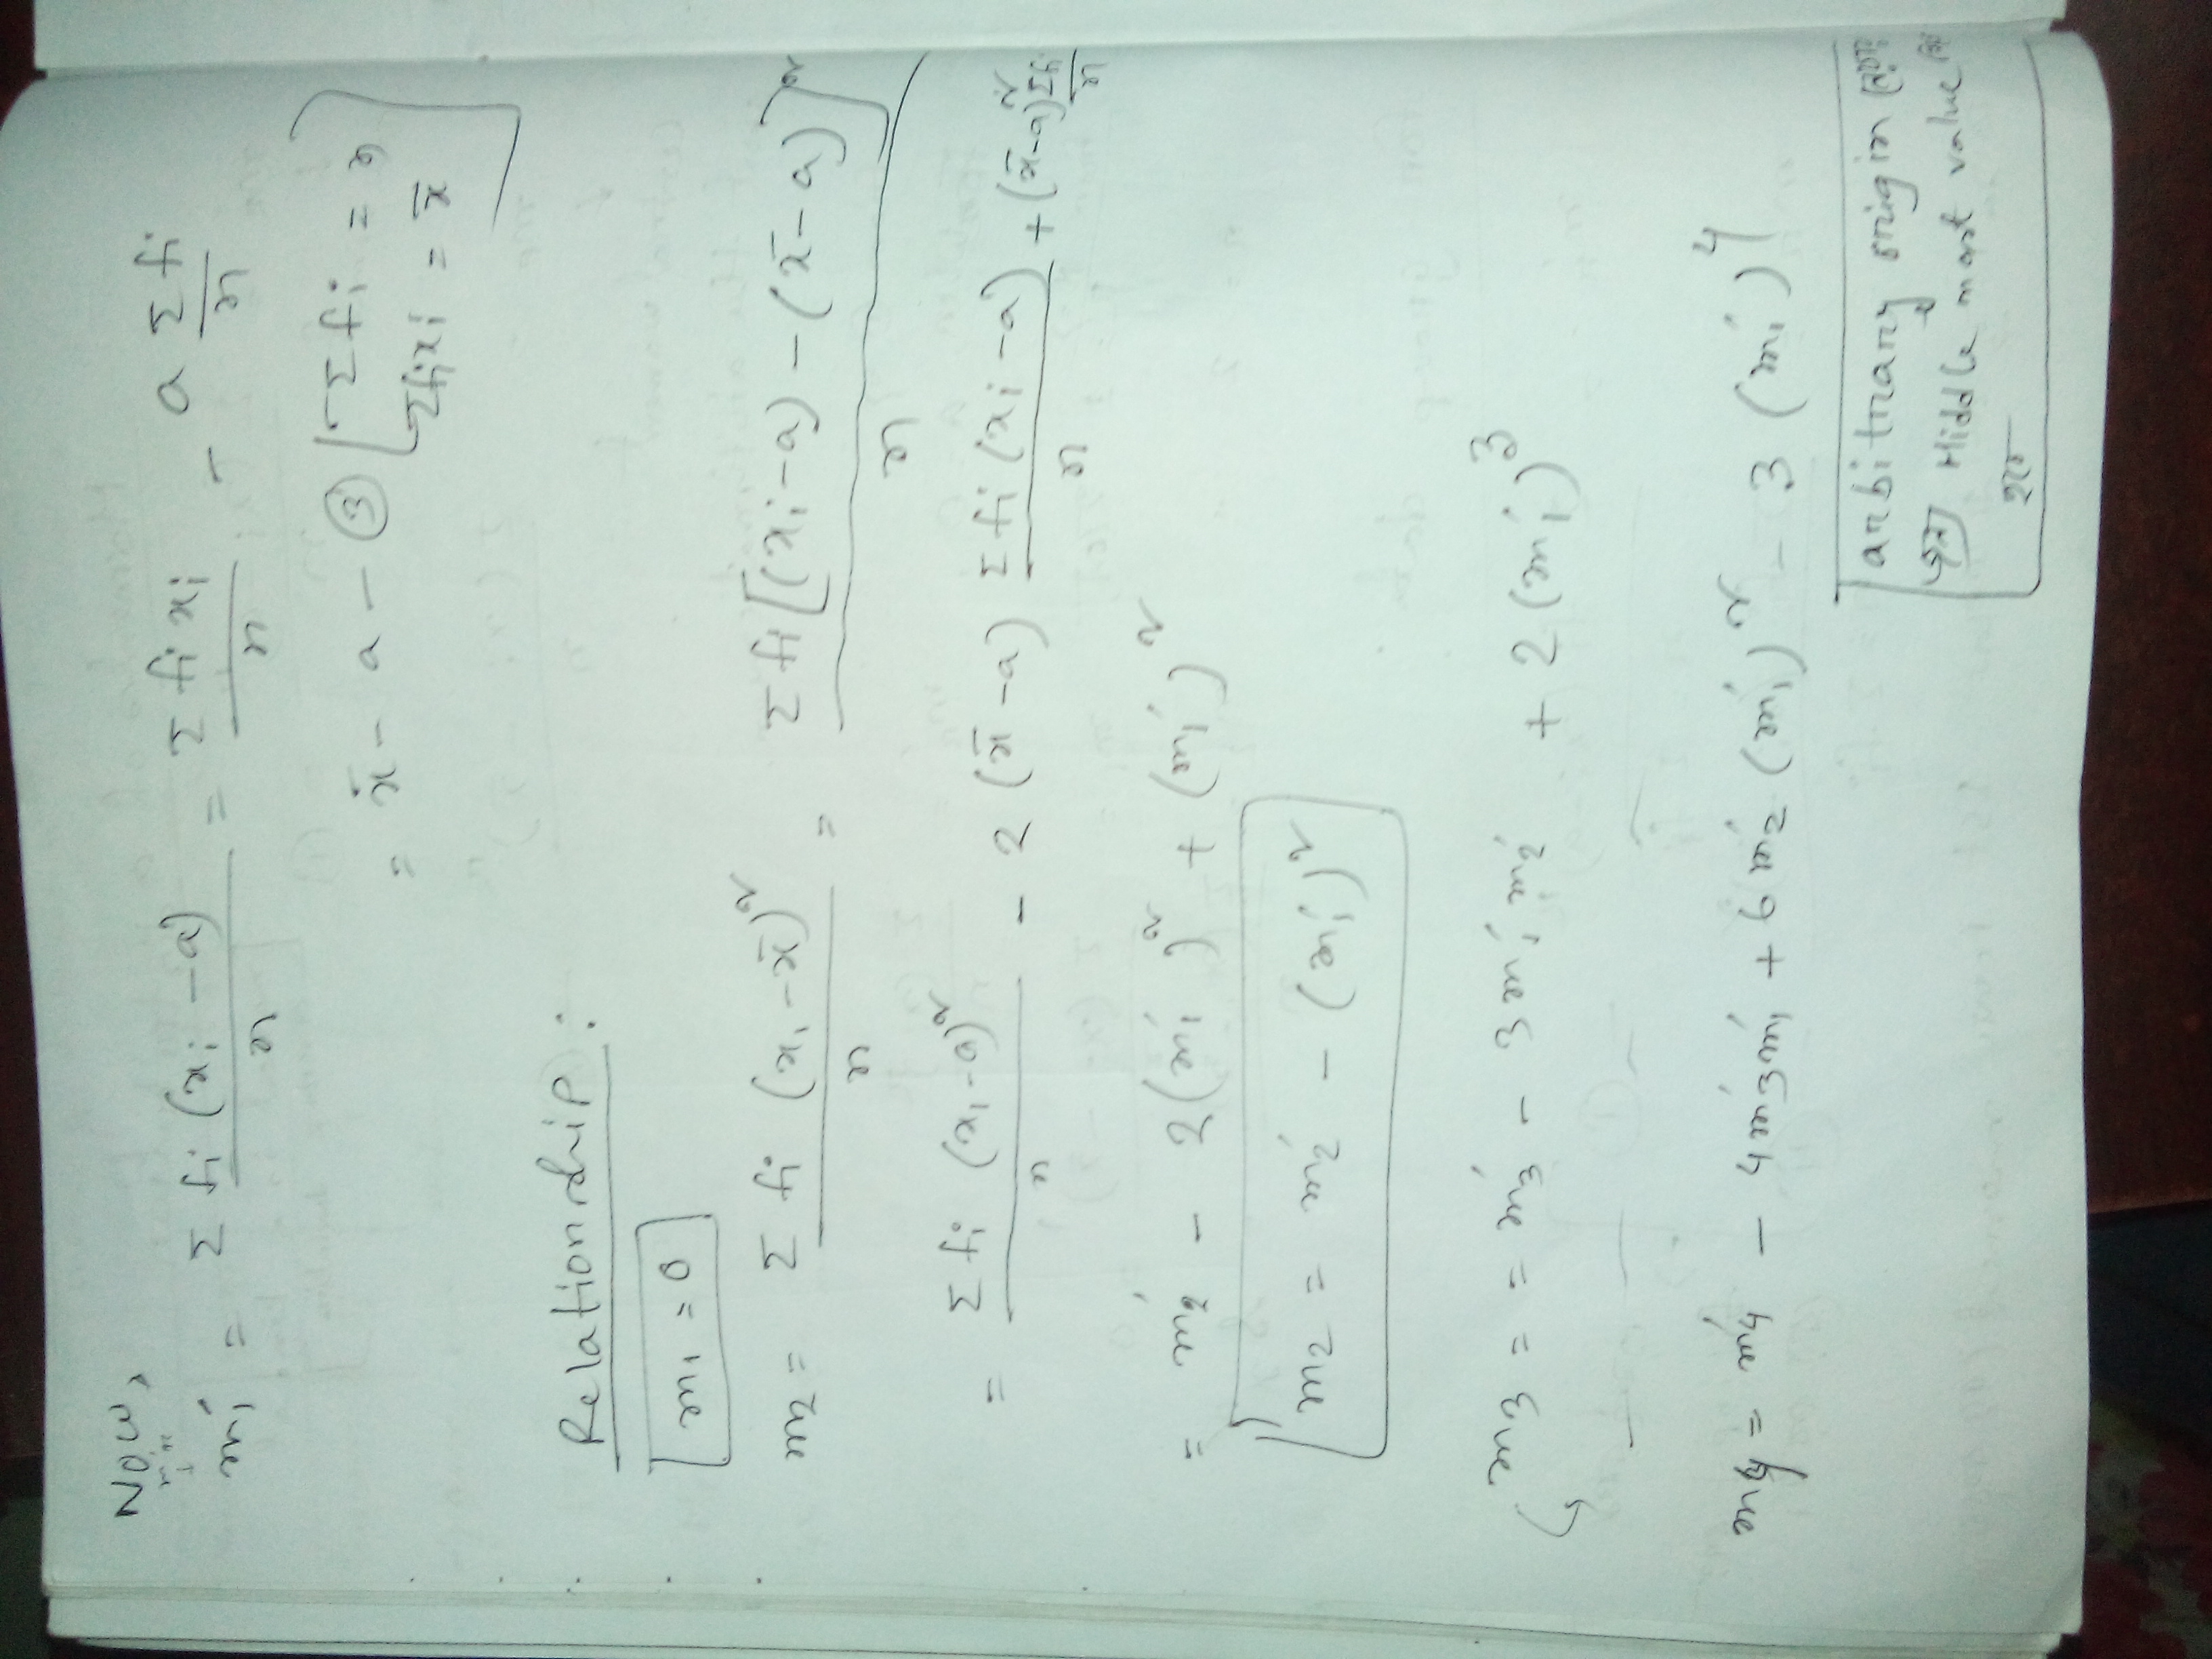 Now,
m₁′ = Σ fi (xi − a) / n = Σ fi xi / n − a Σ fi / n
= x̄ − a − ③ [Σ fi = n
Σ fi xi = x̄]
Relationship :
m₁ = 0
m₂ = Σ fi (xi − x̄)² / n = Σ fi [(xi − a) − (x̄ − a)]² / n
= Σ fi (xi − a)² / n − 2 (x̄ − a) Σ fi (xi − a) / n + (x̄ − a)² Σ fi / n
= m₂′ − 2(m₁′)² + (m₁′)²
m₂ = m₂′ − (m₁′)²
m₃ = m₃′ − 3 m₁′ m₂′ + 2 (m₁′)³
m₄ = m₄′ − 4 m₃′ m₁′ + 6 m₂′ (m₁′)² − 3 (m₁′)⁴
arbitrary origin
Middle most value